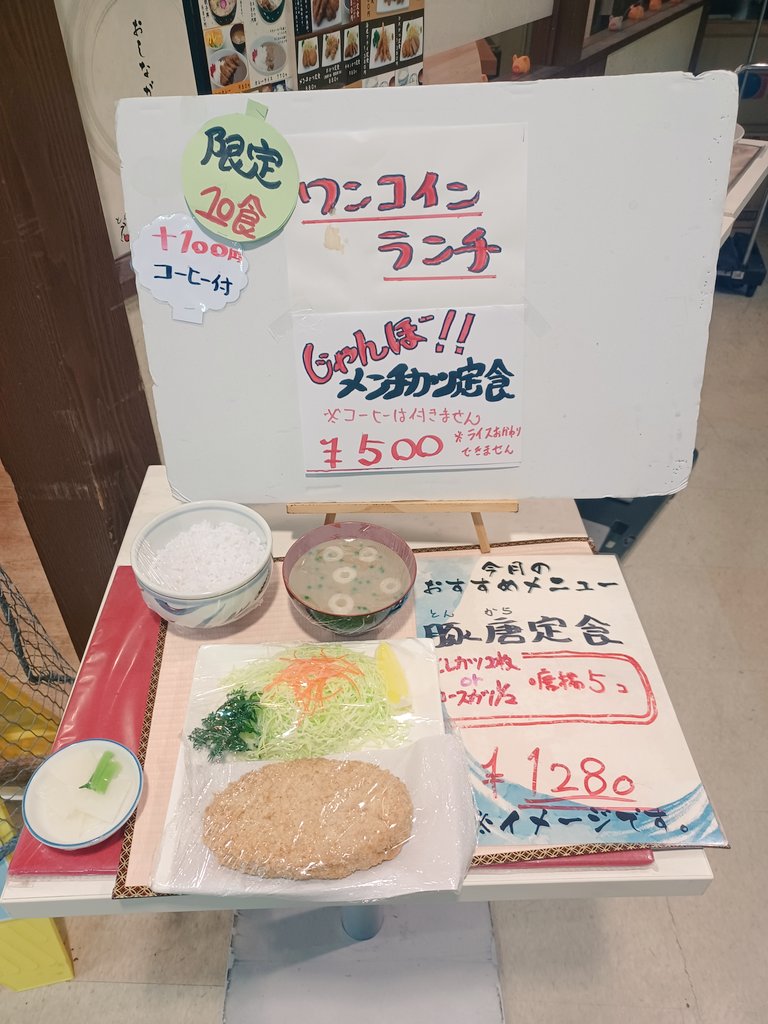 おしながき
限定
10食
+100円
コーヒー付
ワンコイン
ランチ
じゃんぼ!!
メンチカツ定食
※コーヒーは付きません
¥500
※ライスおかわり
できません
今月の
おすすめメニュー
とん から
豚唐定食
ヒレカツ2枚
or
ロースカツ1/2
唐揚5コ
¥1280
※イメージです。